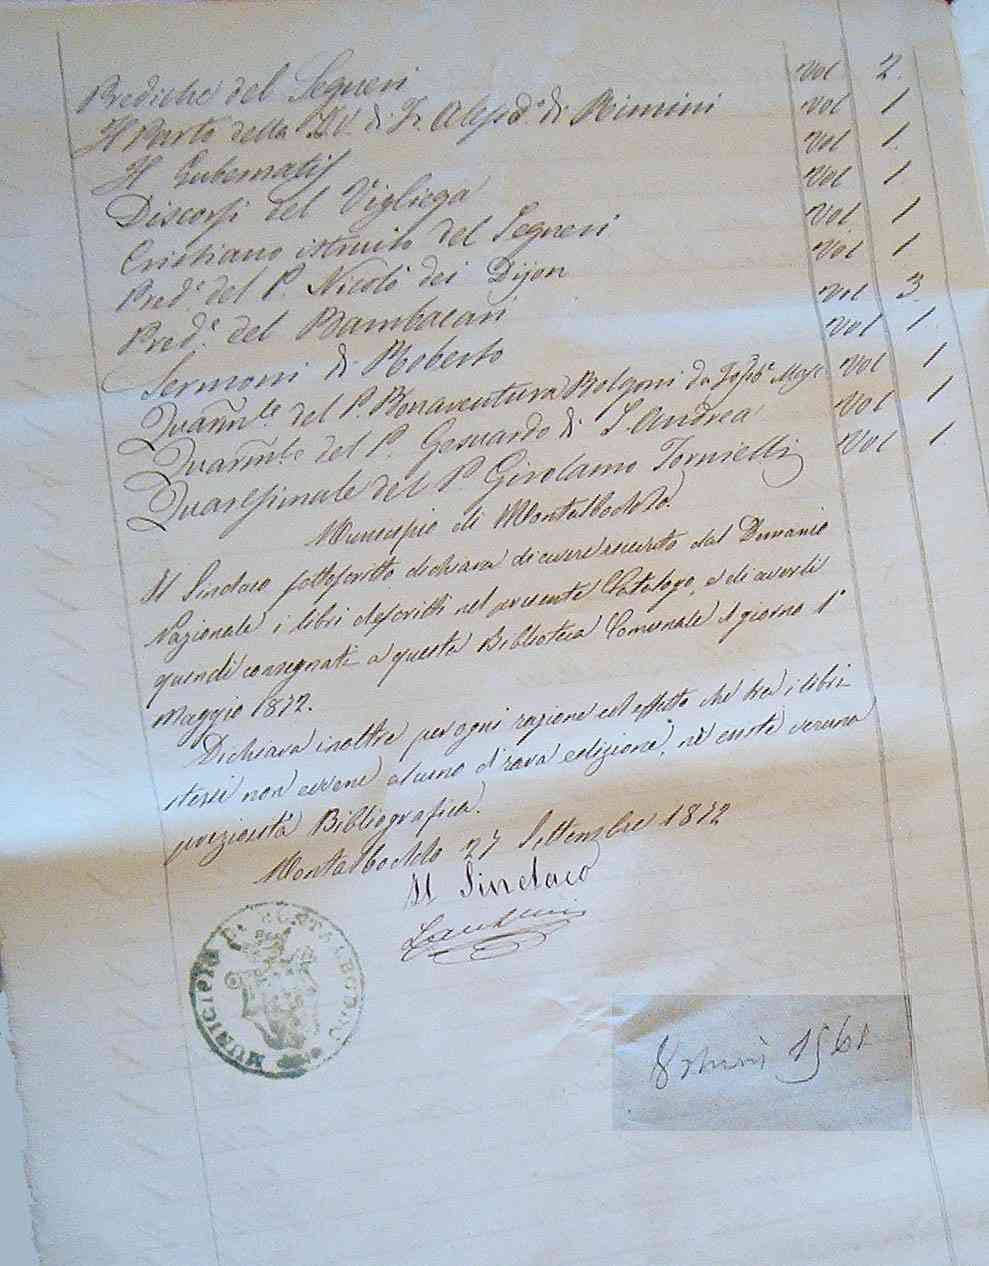 Prediche del Segneri vol 2.
Il Parto della B.V. di Fr. Alessd.º di Rimini vol 1
Il Gubernatis vol 1.
Discorsi del Vigliega vol 1
Cristiano istruito del Segneri vol. 1
Pred.e del P. Nicolò dei Dijon vol 1
Pred.e del Bambacari vol 3.
Sermoni di Roberto vol 1.
Quarm.le del P. Bonaventura Bolgoni da vol 1
Quarm.le del P. Gesuardo di S. Andrea vol 1
Quaresimale del P. Girolamo Tornielli vol 1.
Municipio di Montalboddo.
Il Sindaco sottoscritto dichiara di avere ricevuto dal Demanio
Nazionale i libri descritti nel presente Catalogo, e di averli
quindi consegnati a questa Biblioteca Comunale il giorno 1º
Maggio 1872.
Dichiara inoltre per ogni ragione ed effetto che tra i libri
stessi non avvene alcuno d'rara edizione, nè esiste veruna
preziosità Bibliografica.
Montalboddo 27 Settembre 1872
Il Sindaco
MUNICIPIO DI MONTALBODDO
1561